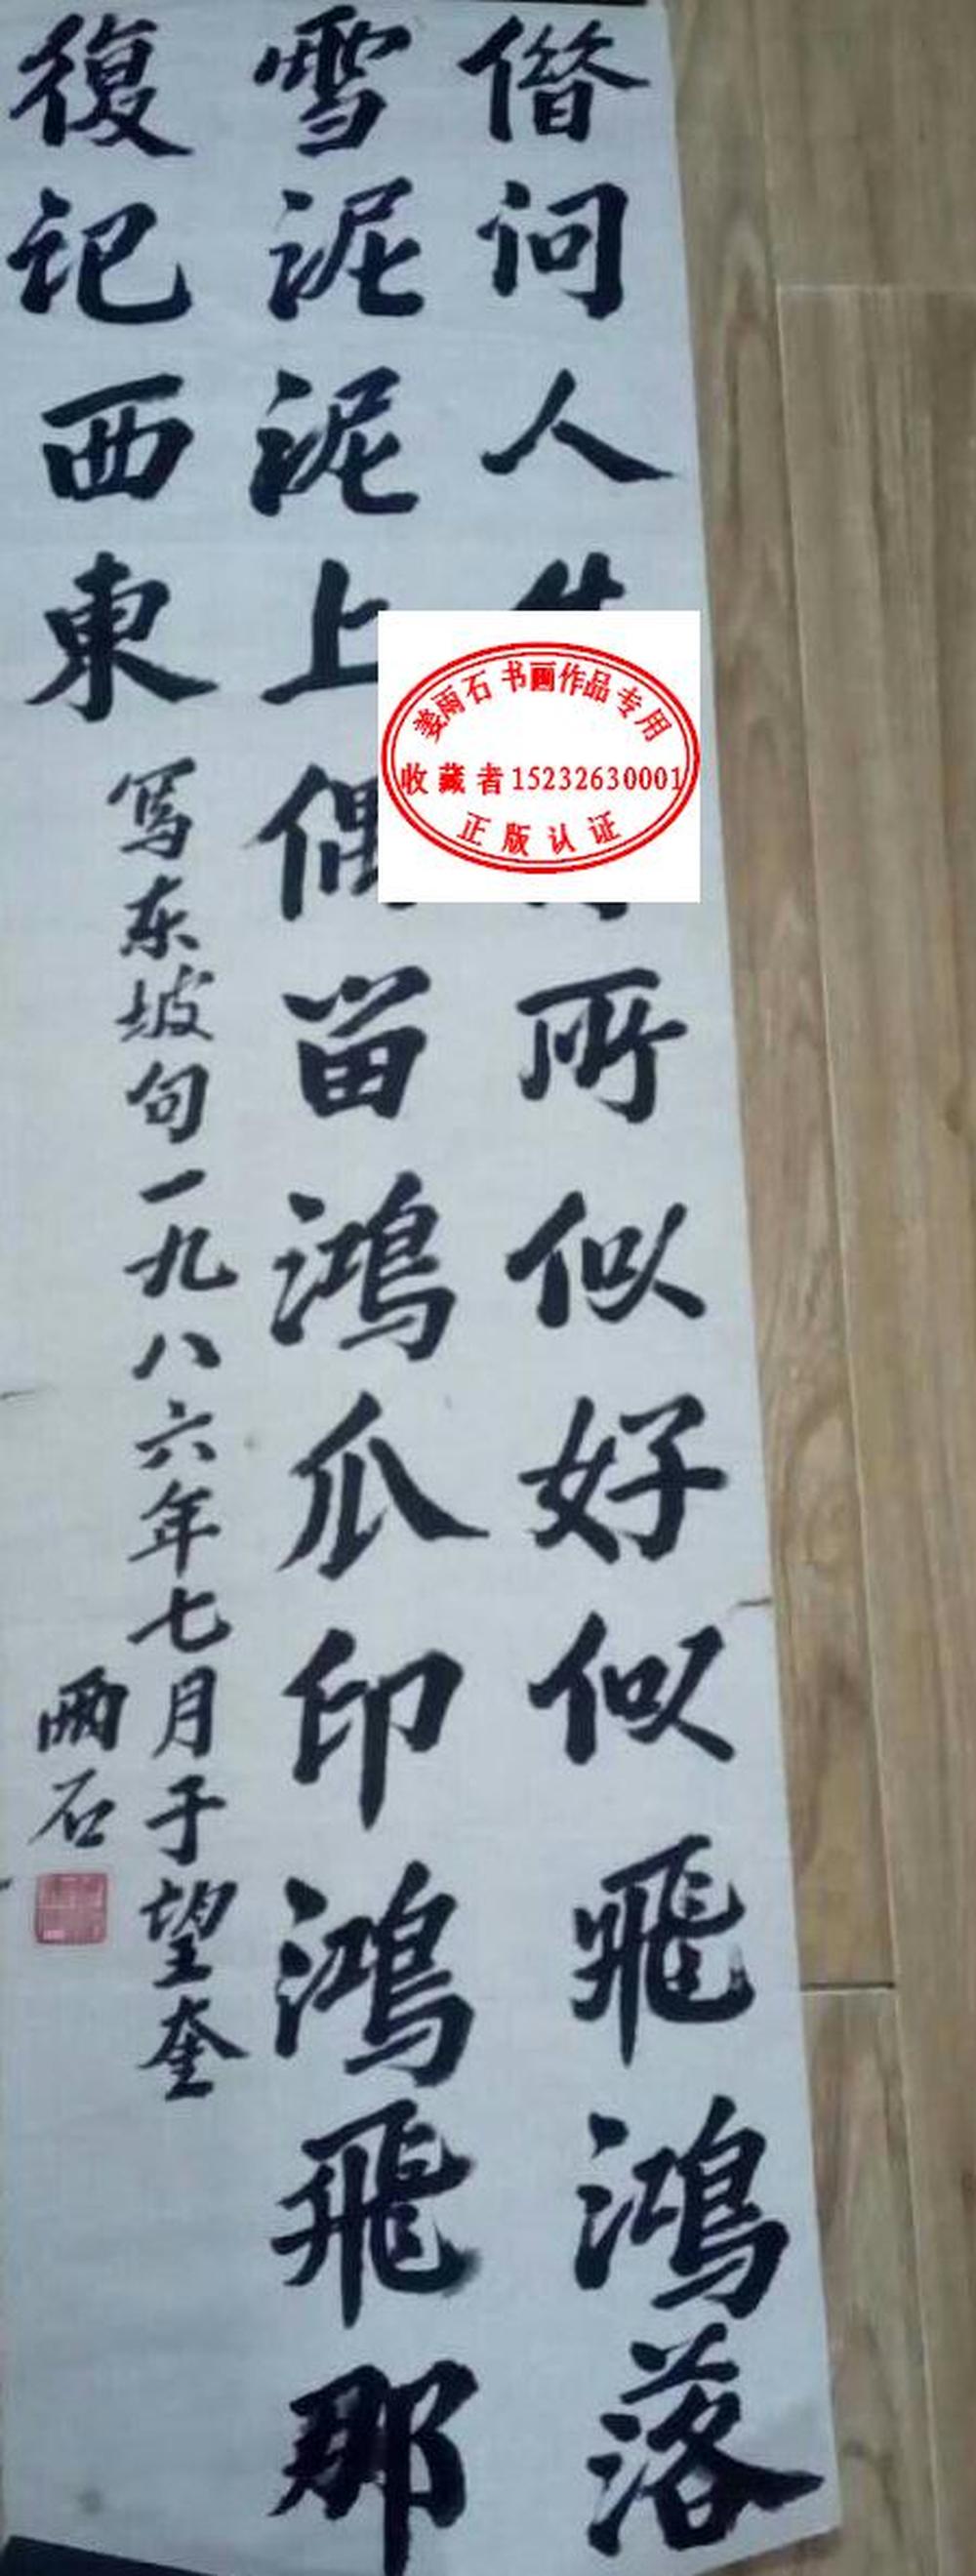 偺问人所似好似飛鴻落
雪泥泥上偶留鴻爪印鴻飛那
復记西東
写东坡句一九八六年七月于望奎
雨石
姜雨石书画作品专用
收藏者15232630001
正版认证